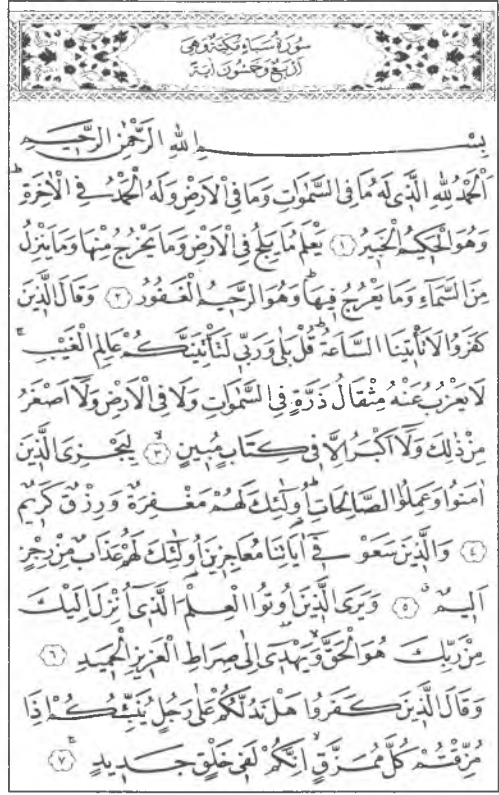 سُورَةُ سَبَاءٍ مَكِّيَّةٌ وَهِيَ
اَرْبَعٌ وَخَمْسُونَ اٰيَةً
بِسْمِ اللّٰهِ الرَّحْمٰنِ الرَّحِيمِ
اَلْحَمْدُ لِلّٰهِ الَّذِى لَهُ مَا فِى السَّمٰوَاتِ وَمَا فِى الْاَرْضِ وَلَهُ الْحَمْدُ فِى الْاٰخِرَةِۜ
وَهُوَ الْحَكِيمُ الْخَبِيرُ ﴿١﴾ يَعْلَمُ مَا يَلِجُ فِى الْاَرْضِ وَمَا يَخْرُجُ مِنْهَا وَمَا يَنْزِلُ
مِنَ السَّمَاءِ وَمَا يَعْرُجُ فِيهَاۜ وَهُوَ الرَّحِيمُ الْغَفُورُ ﴿٢﴾ وَقَالَ الَّذِينَ
كَفَرُوا لَا تَأْتِينَا السَّاعَةُۜ قُلْ بَلٰى وَرَبِّى لَتَأْتِيَنَّكُمْ عَالِمِ الْغَيْبِۚ
لَا يَعْزُبُ عَنْهُ مِثْقَالُ ذَرَّةٍ فِى السَّمٰوَاتِ وَلَا فِى الْاَرْضِ وَلَا اَصْغَرُ
مِنْ ذٰلِكَ وَلَا اَكْبَرُ اِلَّا فِى كِتَابٍ مُبِينٍ ﴿٣﴾ لِيَجْزِىَ الَّذِينَ
اٰمَنُوا وَعَمِلُوا الصَّالِحَاتِۜ اُولٰئِكَ لَهُمْ مَغْفِرَةٌ وَرِزْقٌ كَرِيمٌ
﴿٤﴾ وَالَّذِينَ سَعَوْ فِى اٰيَاتِنَا مُعَاجِزِينَ اُولٰئِكَ لَهُمْ عَذَابٌ مِنْ رِجْزٍ
اَلِيمٌ ﴿٥﴾ وَيَرَى الَّذِينَ اُوتُوا الْعِلْمَ الَّذِى اُنْزِلَ اِلَيْكَ
مِنْ رَبِّكَ هُوَ الْحَقَّ وَيَهْدِى اِلٰى صِرَاطِ الْعَزِيزِ الْحَمِيدِ ﴿٦﴾
وَقَالَ الَّذِينَ كَفَرُوا هَلْ نَدُلُّكُمْ عَلٰى رَجُلٍ يُنَبِّئُكُمْ اِذَا
مُزِّقْتُمْ كُلَّ مُمَزَّقٍ اِنَّكُمْ لَفِى خَلْقٍ جَدِيدٍۚ ﴿٧﴾